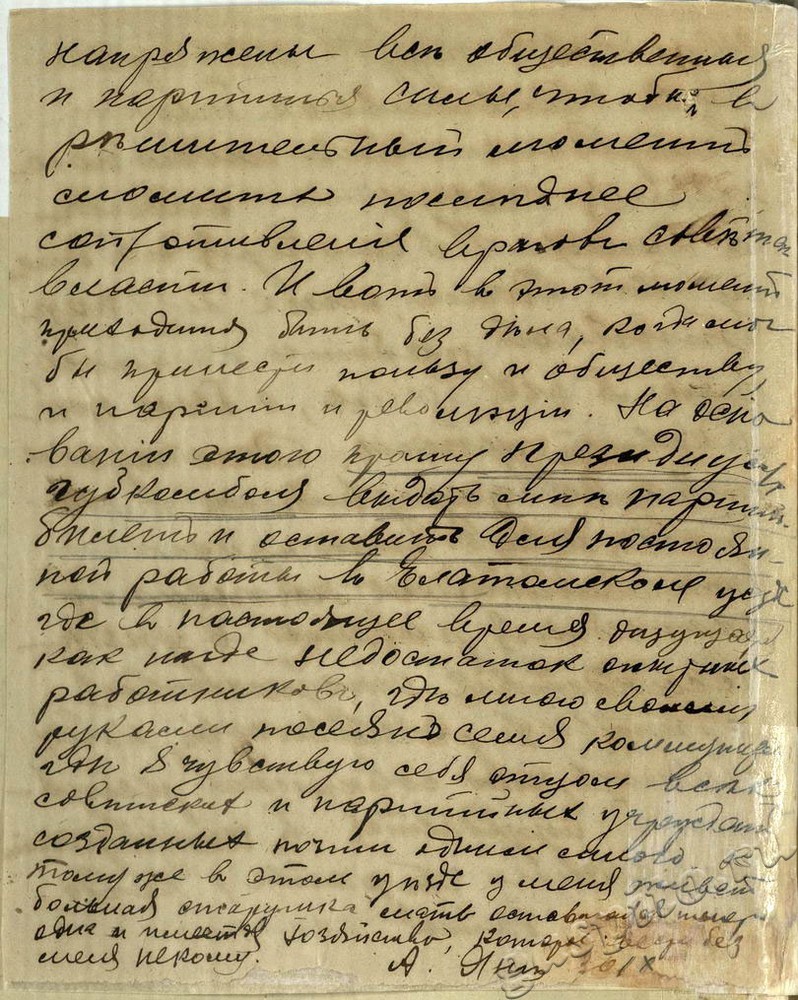 напряжены всѣ общественныя
и партийныя силы, чтобы в
рѣшительный моментъ
сломить послѣднее
сопротивленіе враговъ совѣтской
власти. И вотъ в этот моментъ
приходится быть без дѣла, когда мог
бы принести пользу и обществу
и партіи и революціи. На осно
ваніи этого прошу Президиум
губкомбола выдать мнѣ партий.
билетъ и оставить для постоян-
ной работы в Елатомском уезде
где в настоящее время ощущается
как нигде недостаток опытных
работниковъ, гдѣ мною своими
руками посеяно семя коммуниз
гдѣ я чувствую себя отцом всѣх
совѣтских и партийных учреждений
созданных почти одним мною. К
тому же в этом уезде у меня живет
больная старушка мать
одна и имеется хозяйство, которое вести без
меня некому. А.